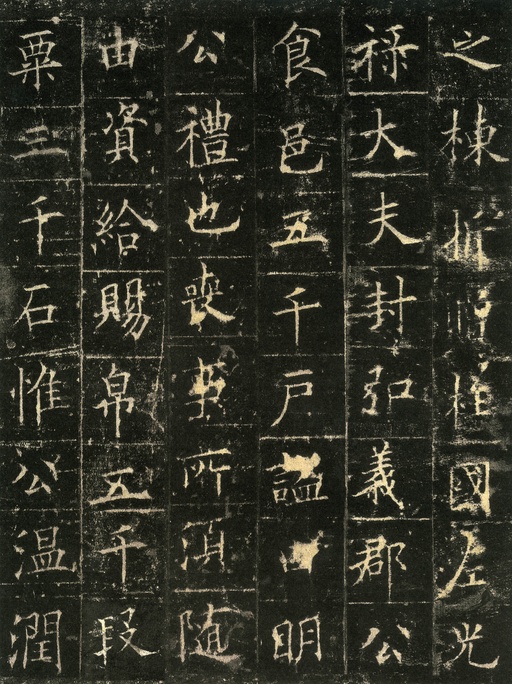 之棟折柱國左光
祿大夫封弘義郡公
食邑五千戶謚曰明
公禮也喪事所須隨
由資給賜帛五千段
粟三千石惟公溫潤